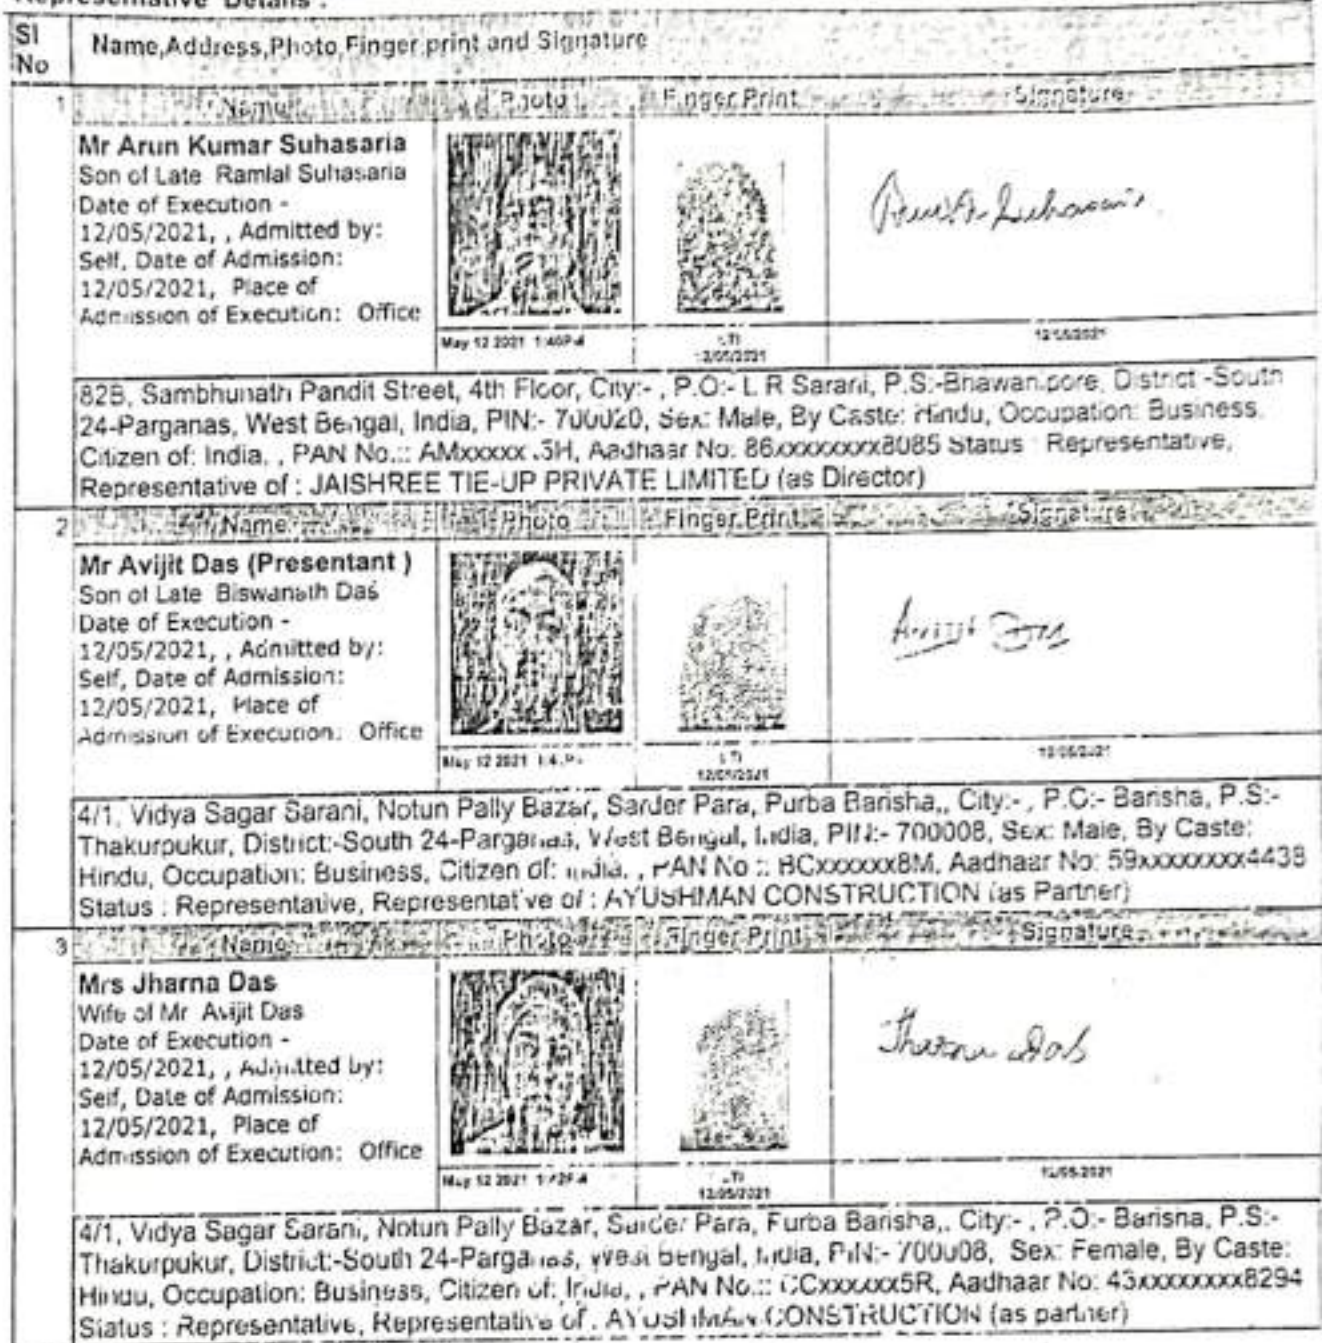 Representative Details :
SI No
Name,Address,Photo,Finger print and Signature
1
Name Photo Finger Print Signature
Mr Arun Kumar Suhasaria
Son of Late Ramlal Suhasaria
Date of Execution -
12/05/2021, , Admitted by:
Self, Date of Admission:
12/05/2021, Place of
Admission of Execution: Office
May 12 2021 1:40PM
LTI
12/05/2021
12/05/2021
82B, Sambhunath Pandit Street, 4th Floor, City:- , P.O:- L R Sarani, P.S:-Bhawanipore, District:-South
24-Parganas, West Bengal, India, PIN:- 700020, Sex: Male, By Caste: Hindu, Occupation: Business,
Citizen of: India, , PAN No.:: AMxxxxx 5H, Aadhaar No: 86xxxxxxxx8085 Status : Representative,
Representative of : JAISHREE TIE-UP PRIVATE LIMITED (as Director)
2
Name Photo Finger Print Signature
Mr Avijit Das (Presentant )
Son of Late Biswanath Das
Date of Execution -
12/05/2021, , Admitted by:
Self, Date of Admission:
12/05/2021, Place of
Admission of Execution: Office
Avijit Das
May 12 2021
LTI
12/05/2021
12/05/2021
4/1, Vidya Sagar Sarani, Notun Pally Bazar, Sarder Para, Purba Barisha,, City:- , P.O:- Barisha, P.S:-
Thakurpukur, District:-South 24-Parganas, West Bengal, India, PIN:- 700008, Sex: Male, By Caste:
Hindu, Occupation: Business, Citizen of: India, , PAN No.:: BCxxxxxx8M, Aadhaar No: 59xxxxxxxx4438
Status : Representative, Representative of : AYUSHMAN CONSTRUCTION (as Partner)
3
Name Photo Finger Print Signature
Mrs Jharna Das
Wife of Mr Avijit Das
Date of Execution -
12/05/2021, , Admitted by:
Self, Date of Admission:
12/05/2021, Place of
Admission of Execution: Office
Jharna Das
May 12 2021 1:42PM
LTI
12/05/2021
12/05/2021
4/1, Vidya Sagar Sarani, Notun Pally Bazar, Sarder Para, Purba Barisha,, City:- , P.O:- Barisha, P.S:-
Thakurpukur, District:-South 24-Parganas, West Bengal, India, PIN:- 700008, Sex: Female, By Caste:
Hindu, Occupation: Business, Citizen of: India, , PAN No.:: CCxxxxxx5R, Aadhaar No: 43xxxxxxxx8294
Status : Representative, Representative of : AYUSHMAN CONSTRUCTION (as partner)